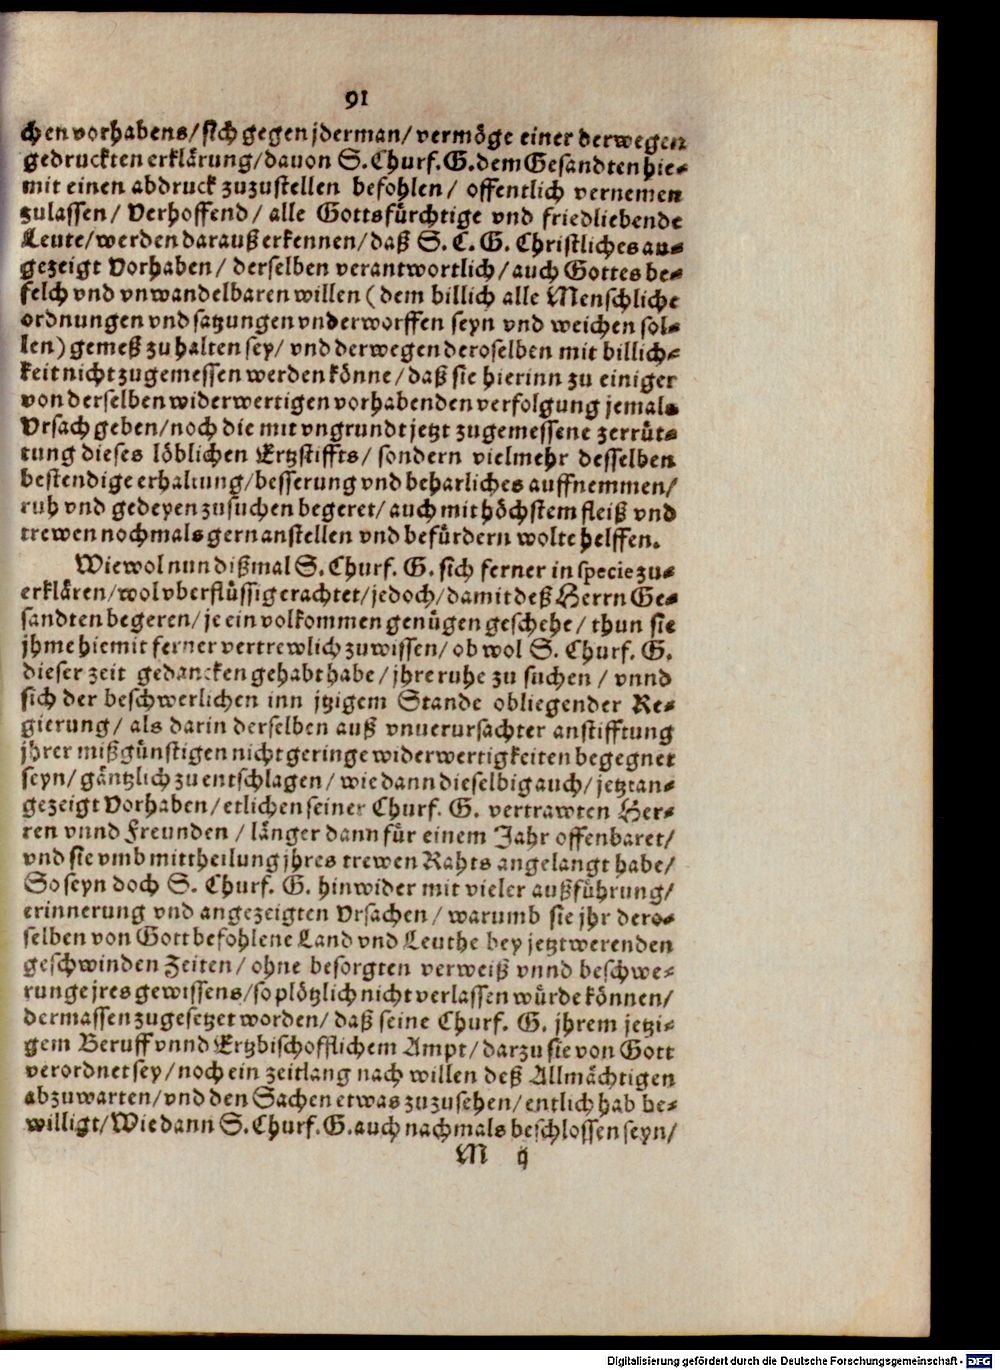 91
chen vorhabens/ sich gegen jderman/ vermöge einer derwegen
gedruckten erklärung/ dauon S. Churf. G. dem Gesandten hie-
mit einen abdruck zuzustellen befohlen/ offentlich vernemen
zulassen/ Verhoffend/ alle Gottsfürchtige vnd friedliebende
Leute/ werden darauß erkennen/ daß S. C. G. Christliches an-
gezeigt Vorhaben/ derselben verantwortlich/ auch Gottes be-
felch vnd vnwandelbaren willen (dem billich alle Menschliche
ordnungen vnd satzungen vnderworffen seyn vnd weichen sol-
len) gemeß zu halten sey/ vnd derwegen deroselben mit billich-
keit nicht zugemessen werden könne/ daß sie hierinn zu einiger
von derselben widerwertigen vorhabenden verfolgung jemals
Vrsach geben/ noch die mit vngrundt jetzt zugemessene zerrüt-
tung dieses löblichen Ertzstiffts/ sondern vielmehr desselben
bestendige erhaltung/ besserung vnd beharliches auffnemmen/
ruh vnd gedeyen zusuchen begeret/ auch mit höchstem fleiß vnd
trewen nochmals gern anstellen vnd befürdern wolte helffen.
Wiewol nun dißmal S. Churf. G. sich ferner in specie zu-
erklären/ wol vberflüssig erachtet/ jedoch/ damit deß Herrn Ge-
sandten begeren/ je ein volkommen genügen geschehe/ thun sie
jhme hiemit ferner vertrewlich zuwissen/ ob wol S. Churf. G.
dieser zeit gedancken gehabt habe/ jhre ruhe zu suchen/ vnnd
sich der beschwerlichen inn jtzigem Stande obliegender Re-
gierung/ als darin derselben auß vnuerursachter anstifftung
jhrer mißgünstigen nicht geringe widerwertigkeiten begegnet
seyn/ gäntzlich zu entschlagen/ wie dann dieselbig auch/ jetzt an-
gezeigt Vorhaben/ etlichen seiner Churf. G. vertrawten Her-
ren vnnd Freunden/ länger dann für einem Jahr offenbaret/
vnd sie vmb mittheilung jhres trewen Rahts angelangt habe/
So seyn doch S. Churf. G. hinwider mit vieler außführung/
erinnerung vnd angezeigten Vrsachen/ warumb sie jhr dero-
selben von Gott befohlene Land vnd Leuthe bey jetzt werenden
geschwinden Zeiten/ ohne besorgten verweiß vnnd beschwe-
runge jres gewissens/ so plötzlich nicht verlassen würde können/
dermassen zugesetzet worden/ daß seine Churf. G. jhrem jetzi-
gem Beruff vnnd Ertzbischofflichem Ampt/ darzu sie von Gott
verordnet sey/ noch ein zeitlang nach willen deß Allmächtigen
abzuwarten/ vnd den Sachen etwas zuzusehen/ entlich hab be-
willigt/ Wie dann S. Churf. G. auch nachmals beschlossen seyn/
M ij
Digitalisierung gefördert durch die Deutsche Forschungsgemeinschaft - DFG